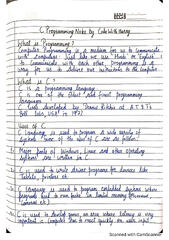 C Programming Notes by Code With Harry
What is Programming?
Computer Programming is a medium for us to communicate
with Computers. Just like we use 'Hindi' or 'English'
to Communicate with each other, Programming is a
way for us to deliver our instructions to the Computer
What is C?
C is a programming language
C is one of the oldest and finest programming
languages
C was developed by Dennis Ritchie at AT & T's
Bell Labs, USA in 1972.
Uses of C
C Language is used to program a wide variety of
systems. Some of the uses of C are as follows:
Major parts of Windows, Linux and other operating
systems are written in C
C is used to write driver programs for devices like
Tablets, printers etc.
C language is used to program embedded systems where
programs need to run faster in limited memory
C is used to develop games, an area where latency is very
important i.e. Computer has to react quickly on user input
Scanned with CamScanner